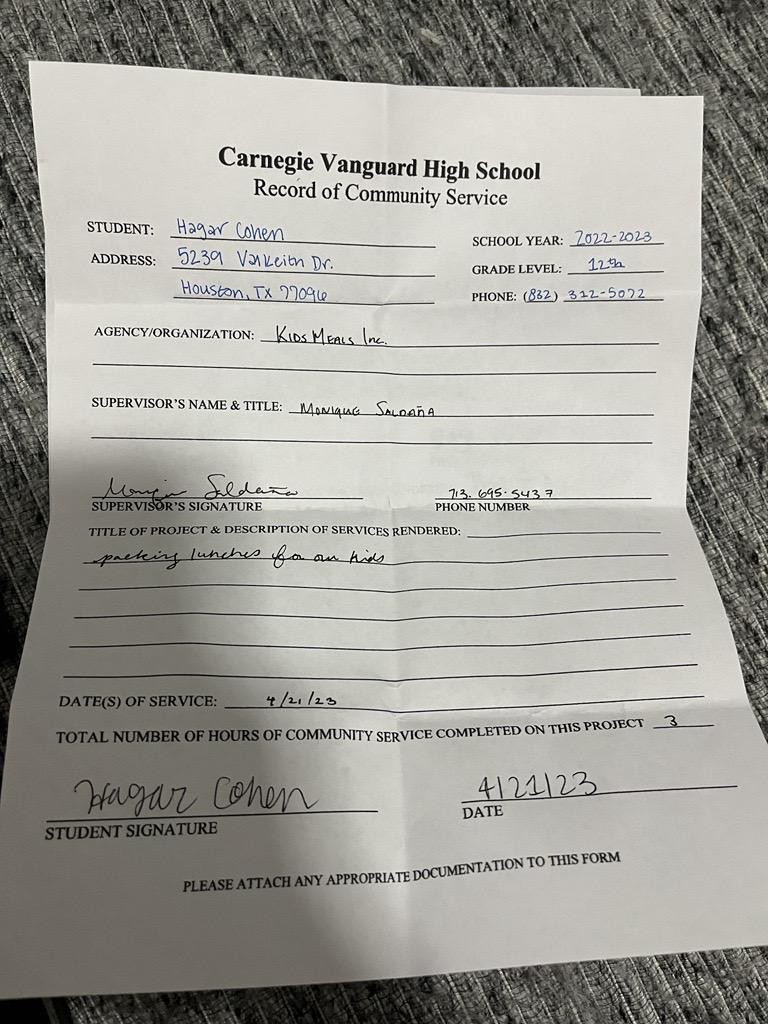 Carnegie Vanguard High School
Record of Community Service
STUDENT: Hagar Cohen
SCHOOL YEAR: 2022-2023
ADDRESS: 5239 Valkeith Dr.
GRADE LEVEL: 12th
Houston, TX 77096
PHONE: (832) 312-5072
AGENCY/ORGANIZATION: KIDS MEALS Inc.
SUPERVISOR'S NAME & TITLE: MONIQUE SALDAÑA
Monique Saldaña
713. 695. 5437
SUPERVISOR'S SIGNATURE
PHONE NUMBER
TITLE OF PROJECT & DESCRIPTION OF SERVICES RENDERED:
packing lunches for our kids
DATE(S) OF SERVICE: 4/21/23
TOTAL NUMBER OF HOURS OF COMMUNITY SERVICE COMPLETED ON THIS PROJECT 3
Hagar Cohen
4/21/23
STUDENT SIGNATURE
DATE
PLEASE ATTACH ANY APPROPRIATE DOCUMENTATION TO THIS FORM